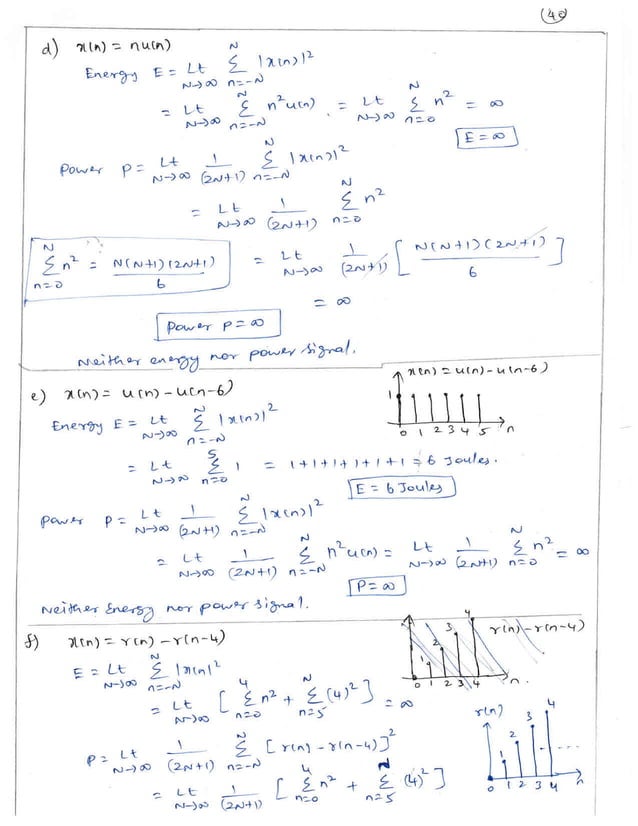 (40)
d) x(n) = nu(n)
Energy E = Lt N→∞ Σ n=-N N |x(n)|²
= Lt N→∞ Σ n=-N N n²u(n) = Lt N→∞ Σ n=0 N n² = ∞
E = ∞
Power P = Lt N→∞ 1/(2N+1) Σ n=-N N |x(n)|²
= Lt N→∞ 1/(2N+1) Σ n=0 N n²
Σ n=0 N n² = N(N+1)(2N+1)/6
= Lt N→∞ 1/(2N+1) [N(N+1)(2N+1)/6]
= ∞
Power P = ∞
Neither energy nor power signal.
e) x(n) = u(n) - u(n-6)
x(n) = u(n) - u(n-6)
1
0 1 2 3 4 5 n
Energy E = Lt N→∞ Σ n=-N N |x(n)|²
= Lt N→∞ Σ n=0 5 1 = 1+1+1+1+1+1 = 6 Joules.
E = 6 Joules
Power P = Lt N→∞ 1/(2N+1) Σ n=-N N |x(n)|²
= Lt N→∞ 1/(2N+1) Σ n=-N N n²u(n) = Lt N→∞ 1/(2N+1) Σ n=0 N n² = ∞
P = ∞
Neither Energy nor power signal.
f) x(n) = r(n) - r(n-4)
r(n) - r(n-4)
1 2 3 4
0 1 2 3 4 n
E = Lt N→∞ Σ n=-N N |x(n)|²
= Lt N→∞ [Σ n=0 4 n² + Σ n=5 N (4)²] = ∞
r(n)
1 2 3 4
0 1 2 3 4 n
P = Lt N→∞ 1/(2N+1) Σ n=-N N [r(n) - r(n-4)]²
= Lt N→∞ 1/(2N+1) [Σ n=0 4 n² + Σ n=5 N (4)²]